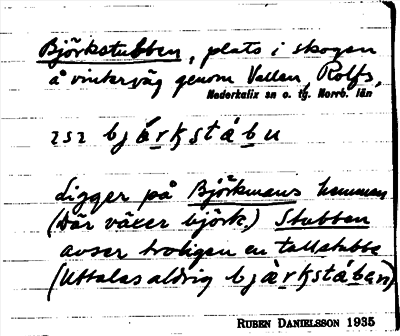 Björkstubben, plats i skogen
å vinterväg genom Vallen, Rolfs,
Nederkalix sn o. tg. Norrb. län
bjárkstábu
Ligger på Björkmans hemman
(Där växer björk.) Stubben
avser troligen en tallstubbe
(Uttalas aldrig bjàrkstában)
RUBEN DANIELSSON 1935